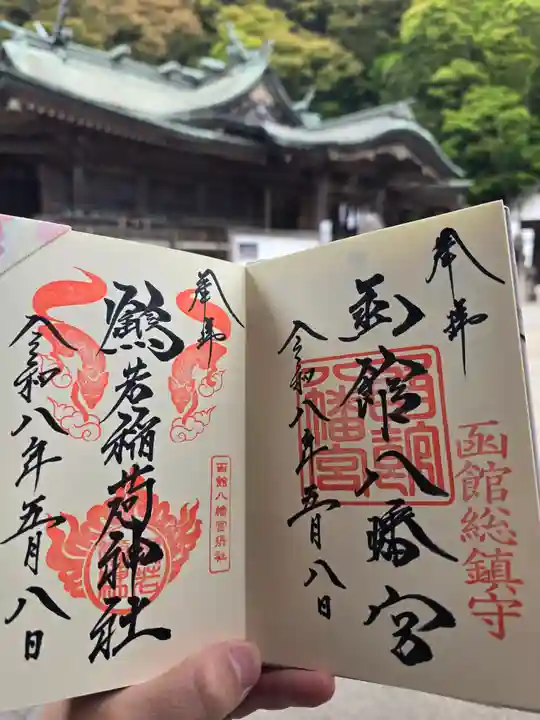 奉拝
函館八幡宮
函館八幡宮
函館総鎮守
令和八年五月八日
奉拝
鶴若稲荷神社
函館八幡宮末社
令和八年五月八日